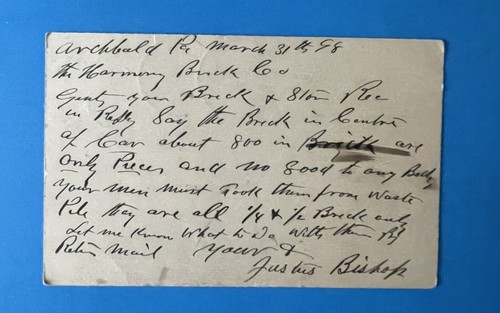 Archbald Pa March 31th 98
The Harmony Brick Co
Gents your Brick & Ston Rec
in Reply Say the Brick in Centre
of Car about 800 in are
Only Pieces and no good to any Body
your men must Took them from Waste
Pile they are all 1/4 & 1/2 Brick only
Let me Know What to Do With them By
Return Mail your &
Justus Bishop